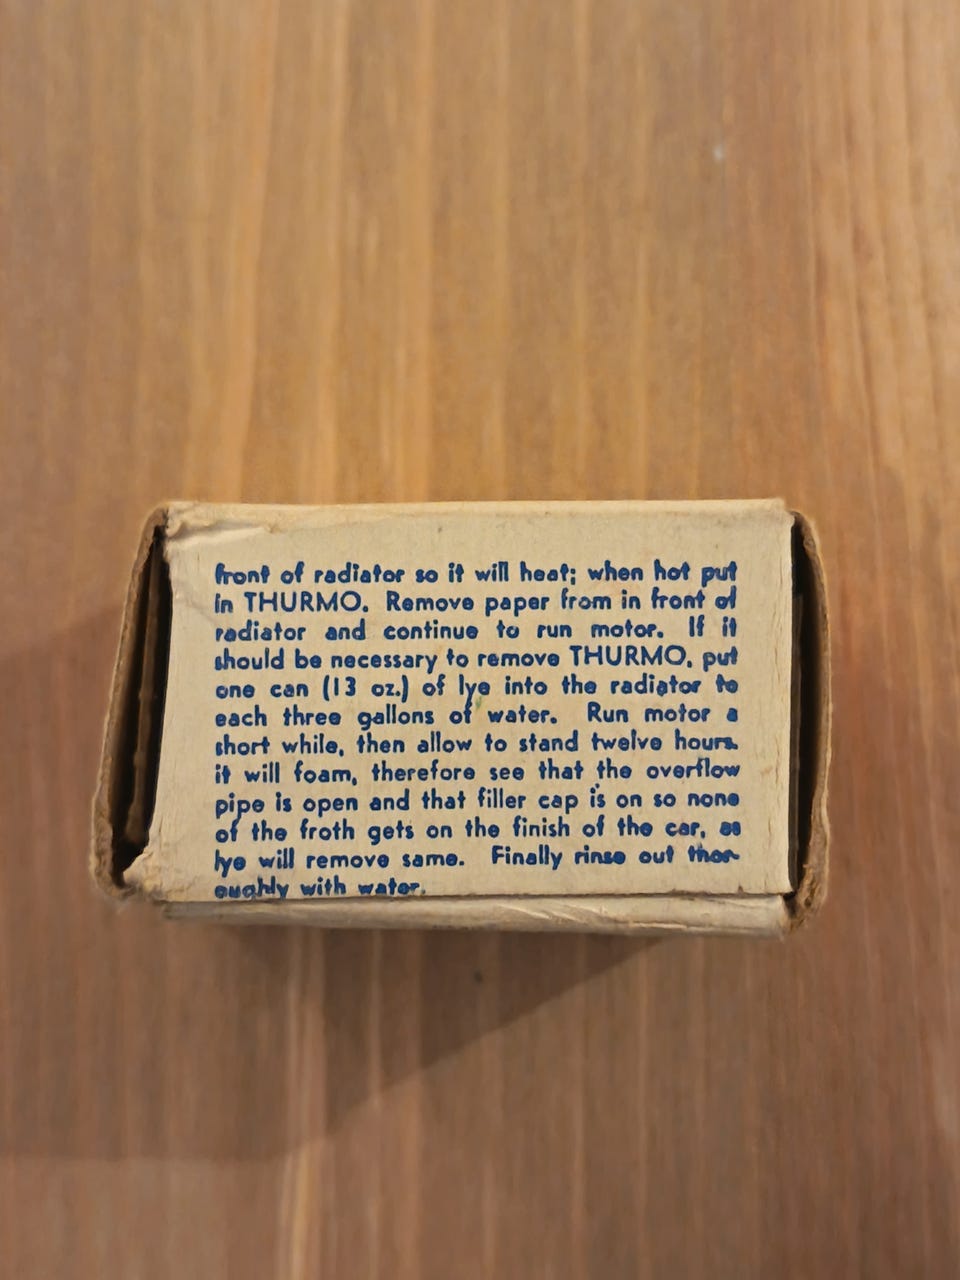 front of radiator so it will heat; when hot put
in THURMO. Remove paper from in front of
radiator and continue to run motor. If it
should be necessary to remove THURMO, put
one can (13 oz.) of lye into the radiator to
each three gallons of water. Run motor a
short while, then allow to stand twelve hours.
it will foam, therefore see that the overflow
pipe is open and that filler cap is on so none
of the froth gets on the finish of the car, as
lye will remove same. Finally rinse out thor-
oughly with water.